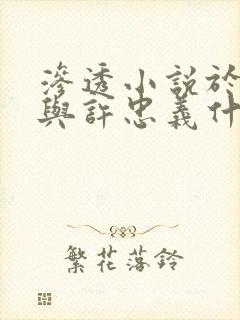 滲透小說於
與許忠義什
繁花落鈴